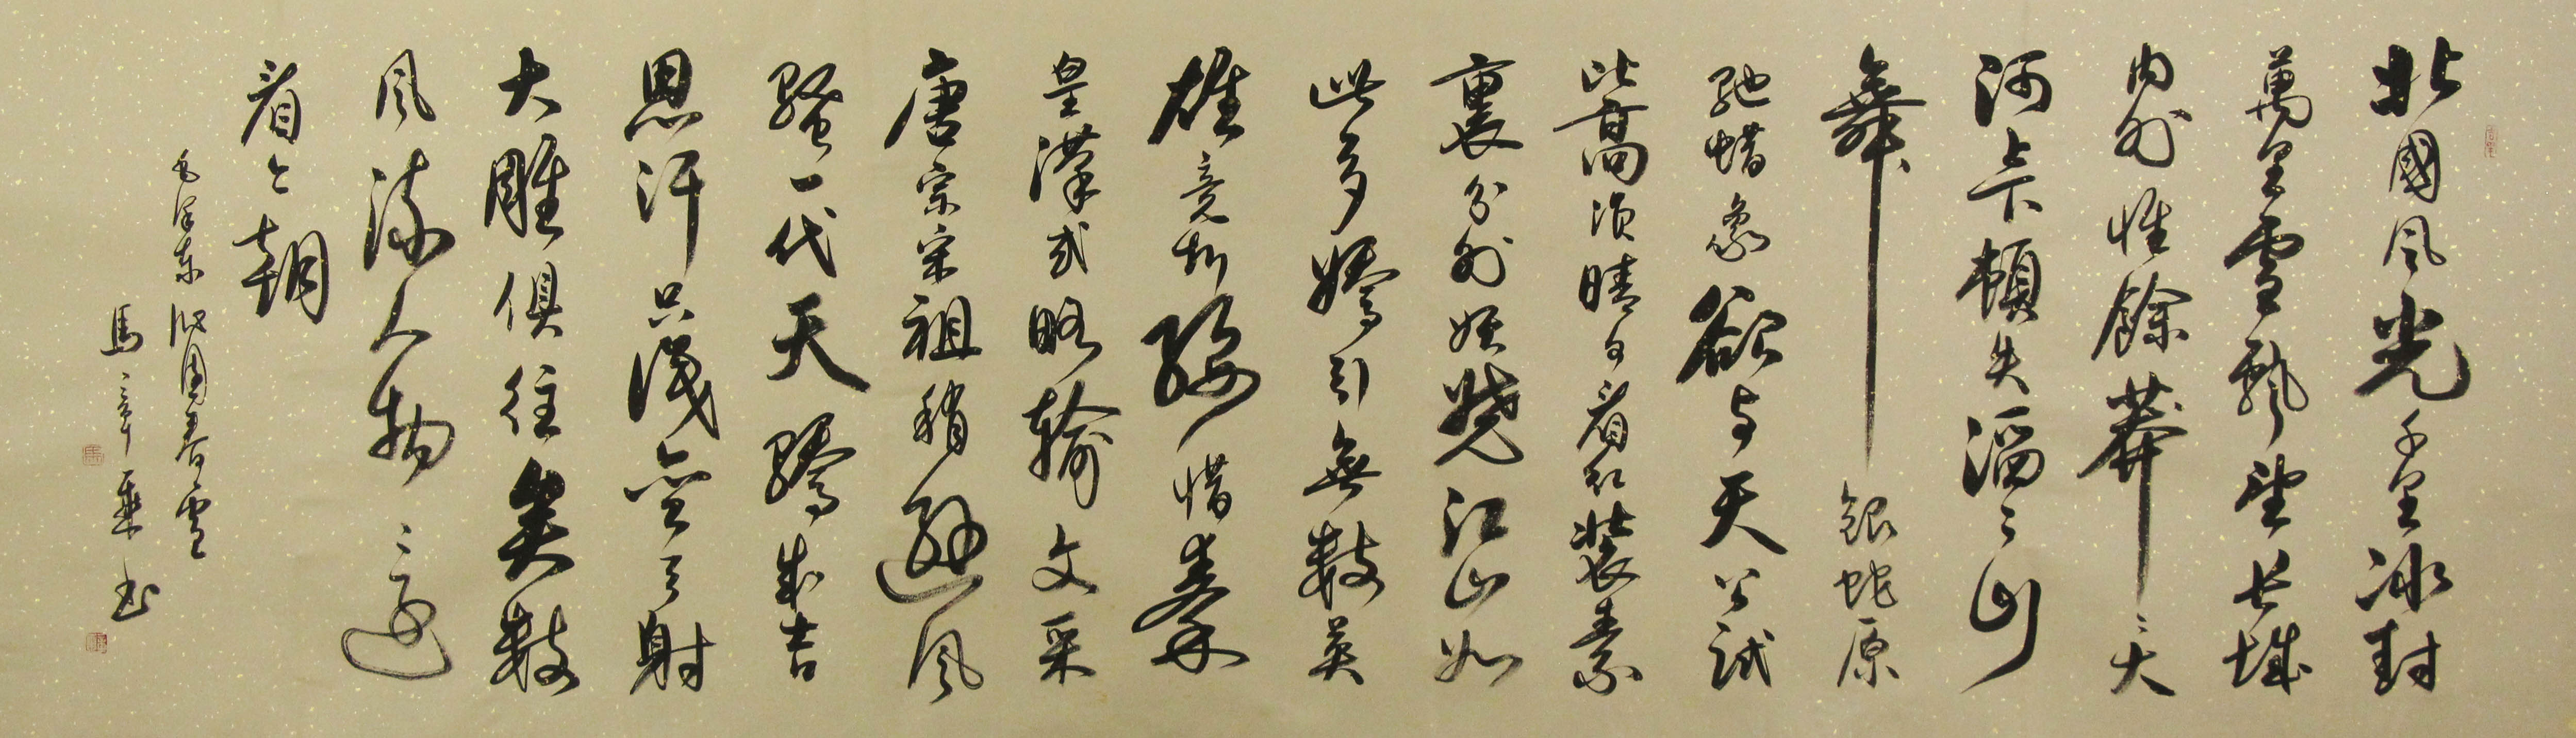 北國風光千里冰封
萬里雪飄望長城
内外惟餘莽々大
河上下頓失滔々山
舞銀蛇原
馳蜡象欲与天公試
比高須晴日看紅裝素
裹分外妖嬈江山如
此多嬌引無數英
雄竞折腰惜秦
皇漢武略輸文采
唐宗宋祖稍遜風
騷一代天驕成吉
思汗只識彎弓射
大雕俱往矣數
風流人物還
看今朝
毛澤東沁園春雪
馬章乘书